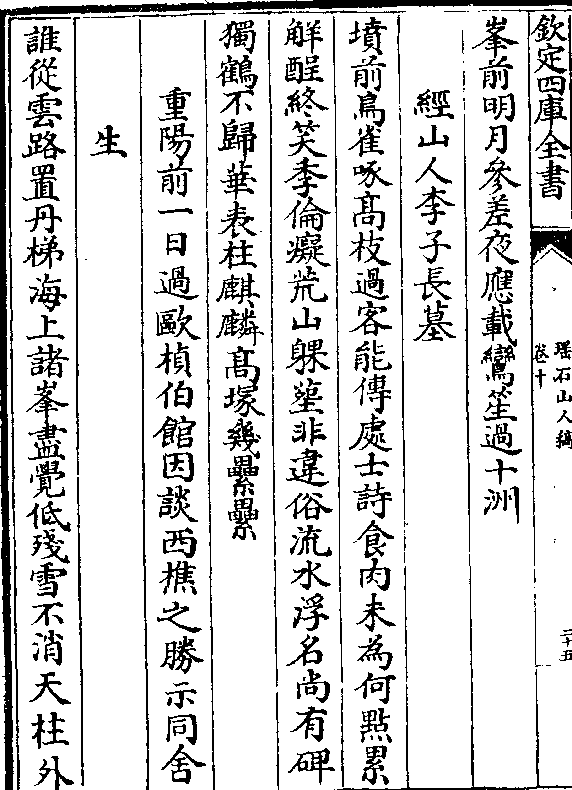 欽定四庫全書
瑶石山人稿
卷十
二十五
峯前明月參差夜應載鸞笙過十洲
經山人李子長墓
墳前鳥雀啄髙枝過客能傳處士詩食肉未為何㸃累
解酲終笑季倫癡荒山躶葬非違俗流水浮名尚有碑
獨鶴不歸華表柱麒麟髙塚幾纍纍
重陽前一日過歐楨伯館因談西樵之勝示同舍
生
誰從雲路置丹梯海上諸峯盡覺低殘雪不消天柱外